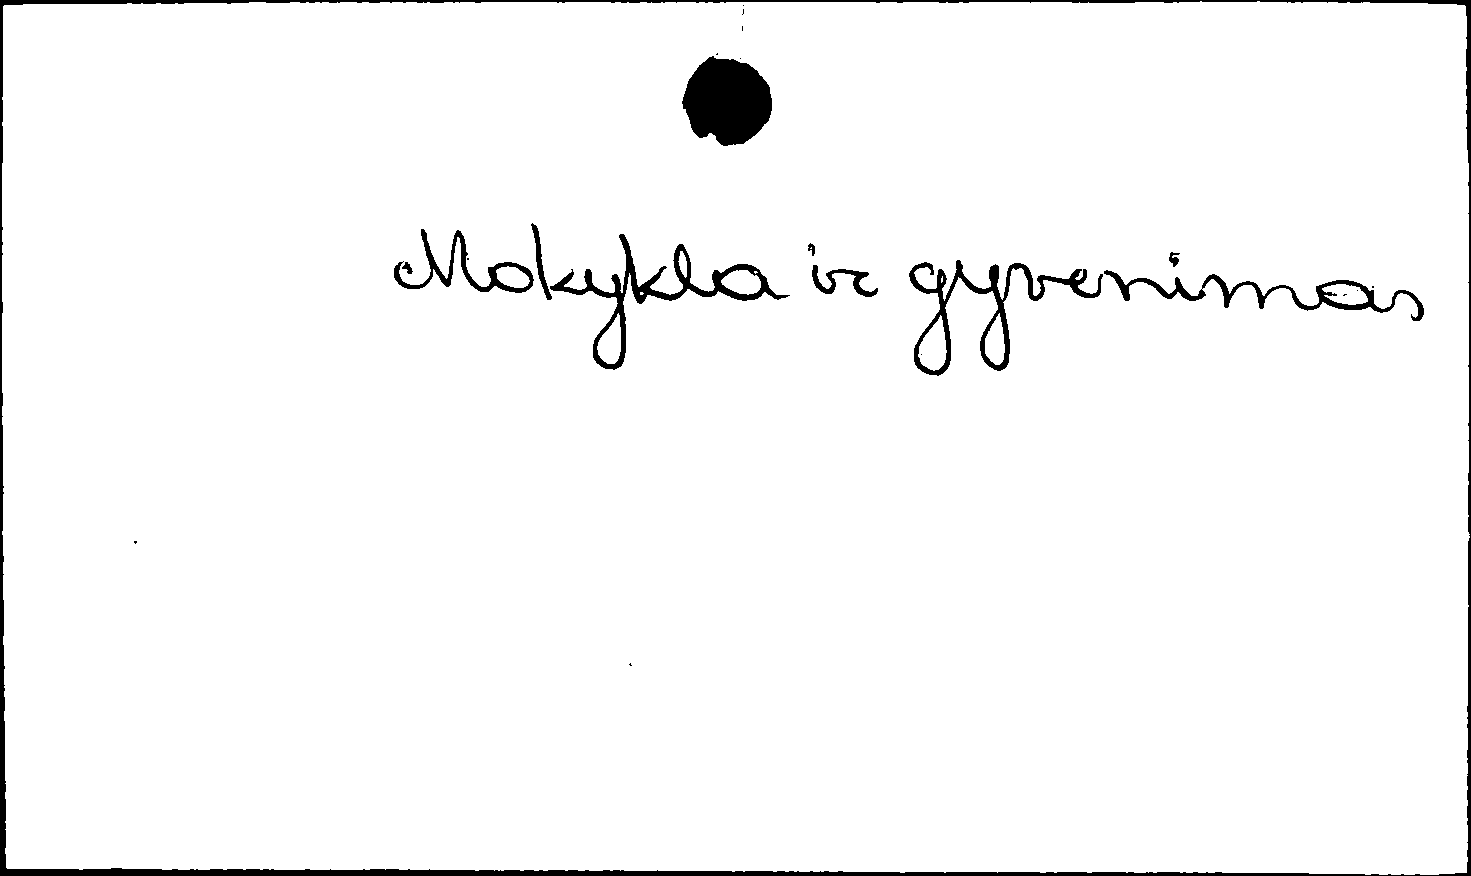 Mokykla ir gyvenimas